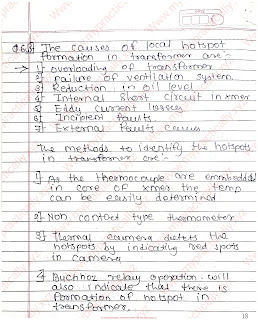 Q.6.3) The causes of local hotspot
formation in transformer are:-
→ 1) overloading of transformer
2) Failure of ventilation system
3) Reduction in oil level
4) Internal short circuit in xmer
5) Eddy current losses
6) Incipient faults
7) External Faults causes
The methods to identify the hotspots
in transformer are:-
1) As the thermocouple are emmbebded
in core of xmer the temp
can be easily determined
2) Non contact type thermometer
3) Thermal camera detets the
hotspots by indicating red spots
in camera
4) Buchhoz relay operation will
also indicate that there is
formation of hotspot in
transformer.
18